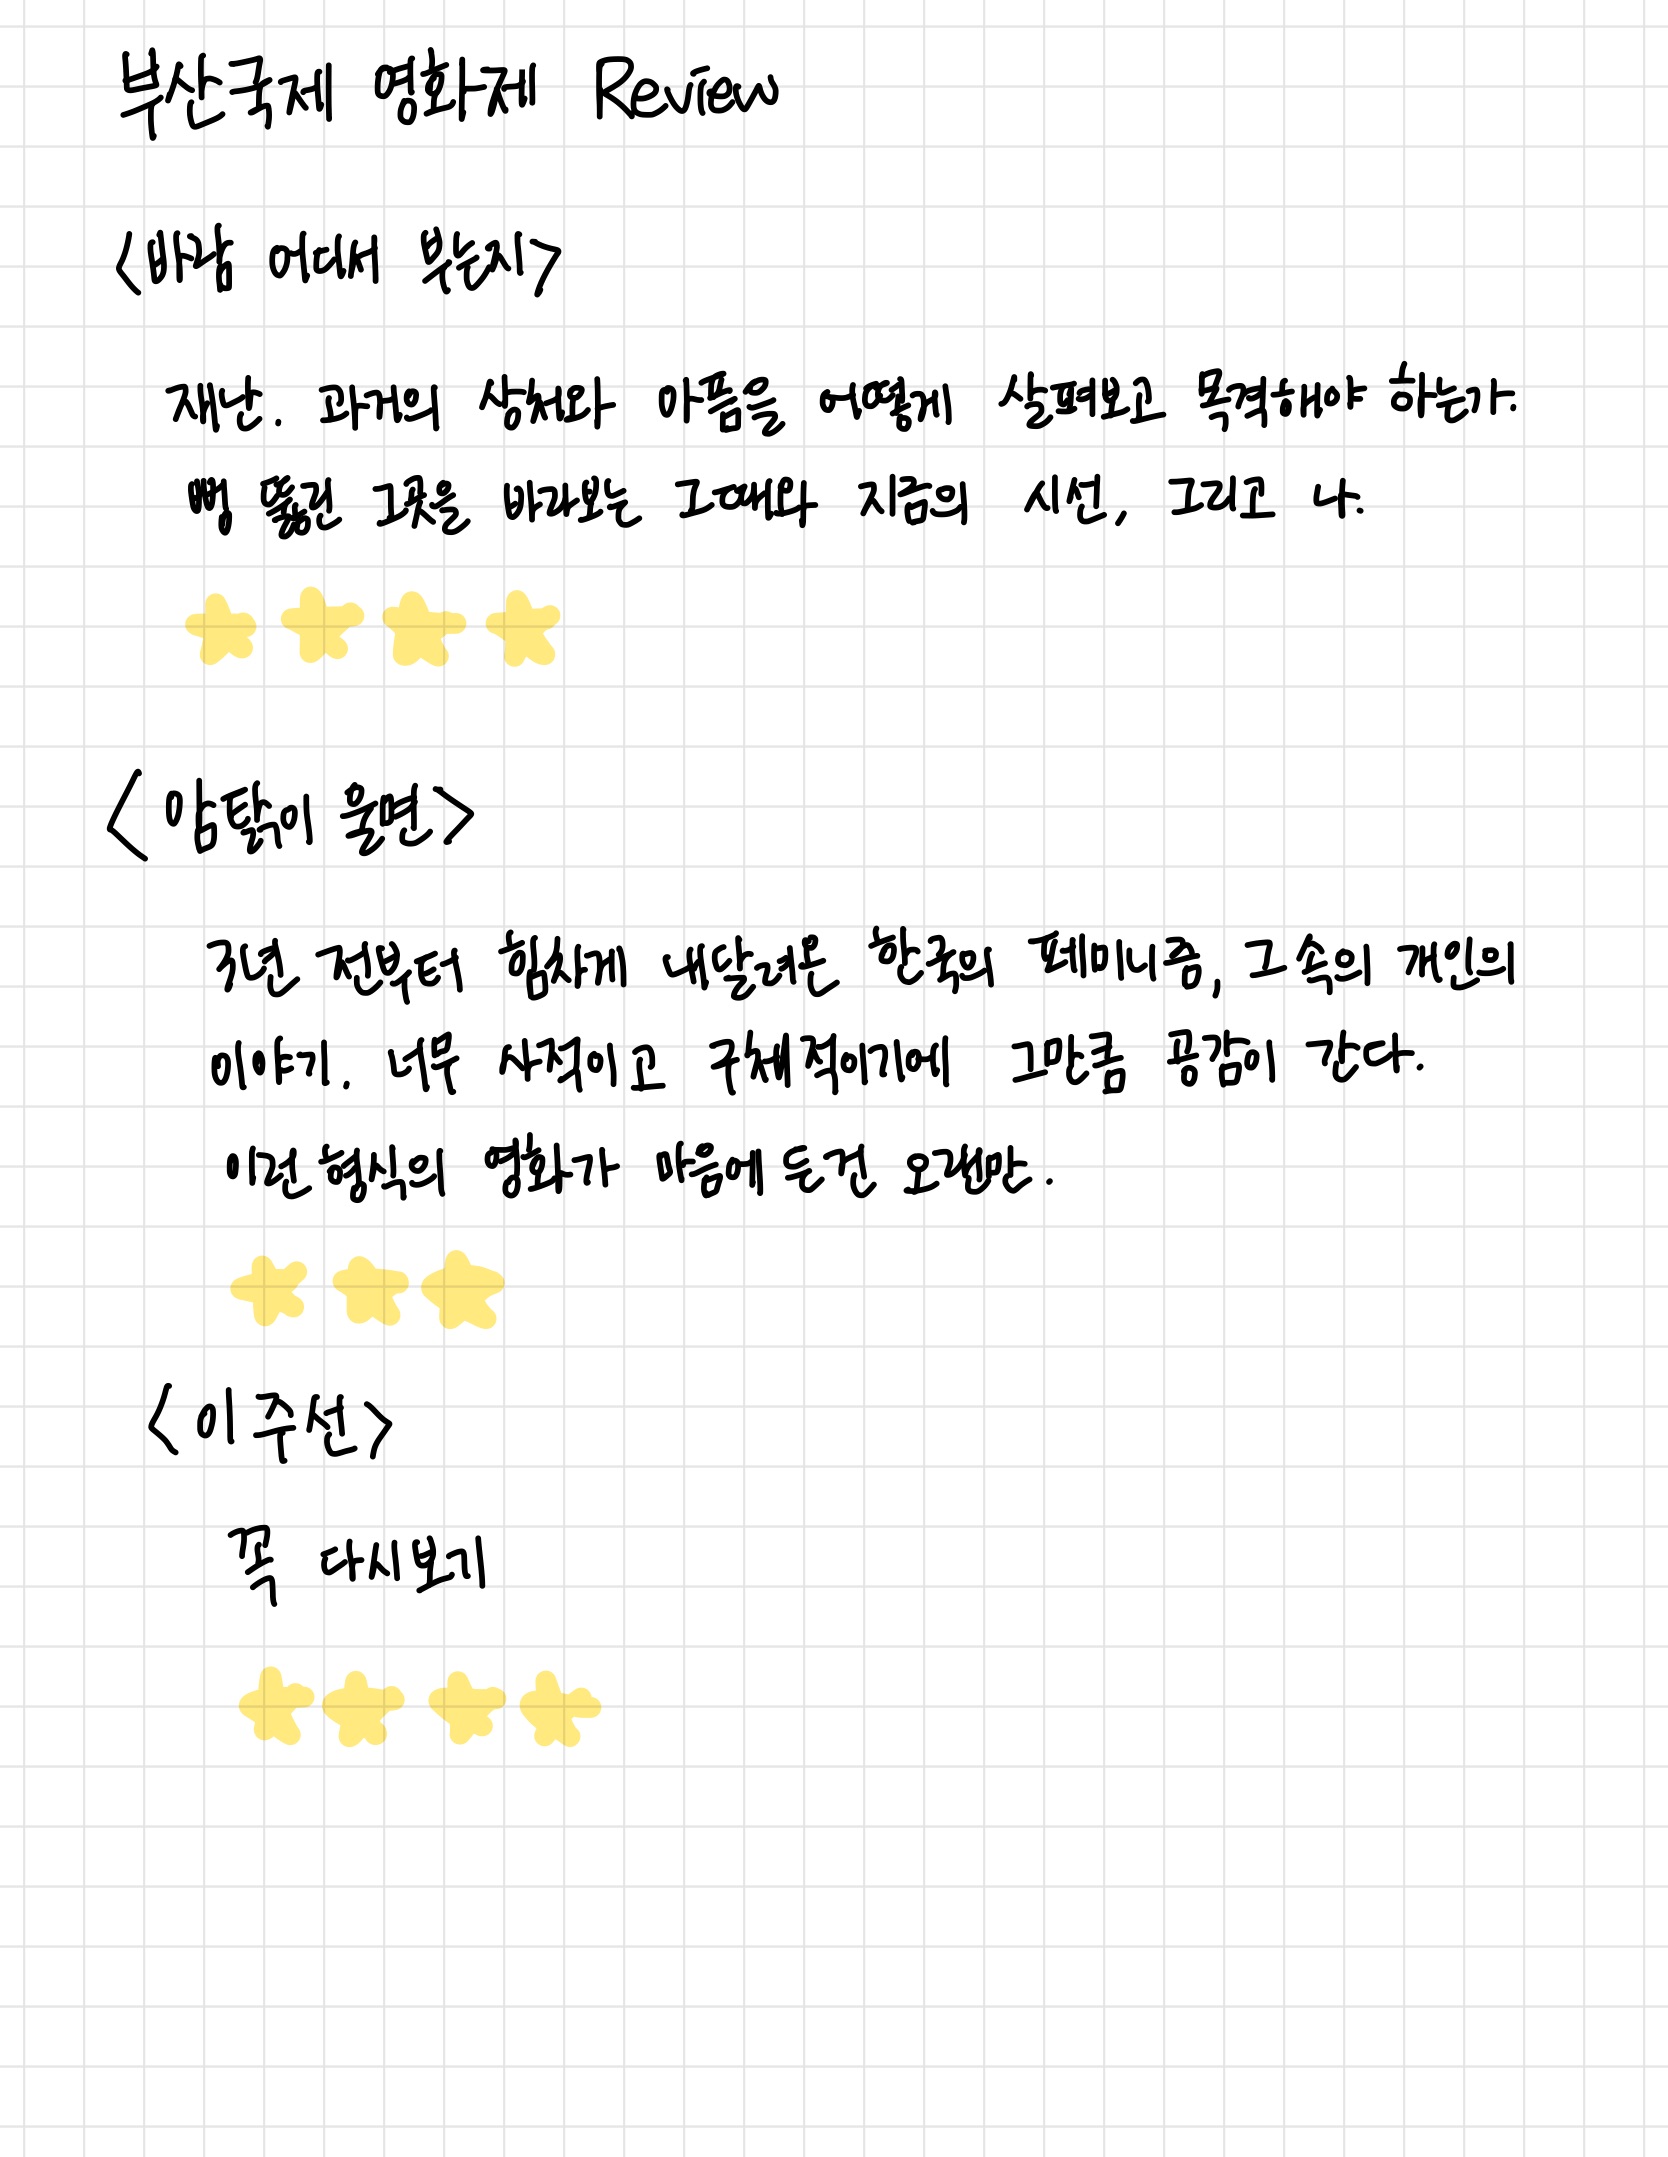 부산국제 영화제 Review
<바람 어디서 부는지>
재난. 과거의 상처와 아픔을 어떻게 살펴보고 목격해야 하는가.
뻥 뚫린 그곳을 바라보는 그때와 지금의 시선, 그리고 나.
<암탉이 울면>
3년 전부터 힘차게 내달려온 한국의 페미니즘, 그 속의 개인의
이야기. 너무 사적이고 구체적이기에 그만큼 공감이 간다.
이런 형식의 영화가 마음에 든건 오랜만.
<이 주선>
꼭 다시보기